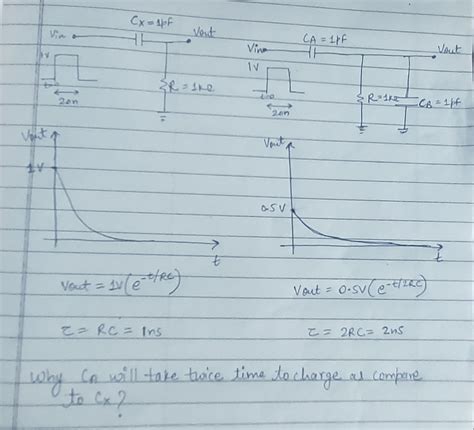 Cx = 1pF
Vin
Vout
1V
R = 1kΩ
t=0
20n
CA = 1pF
Vin
Vout
1V
R = 1kΩ
CB = 1pF
t=0
20n
Vout
1V
t
Vout
0.5V
t
Vout = 1V(e^-t/RC)
τ = RC = 1ns
Vout = 0.5V(e^-t/2RC)
τ = 2RC = 2ns
Why CA will take twice time to charge as compare
to Cx?